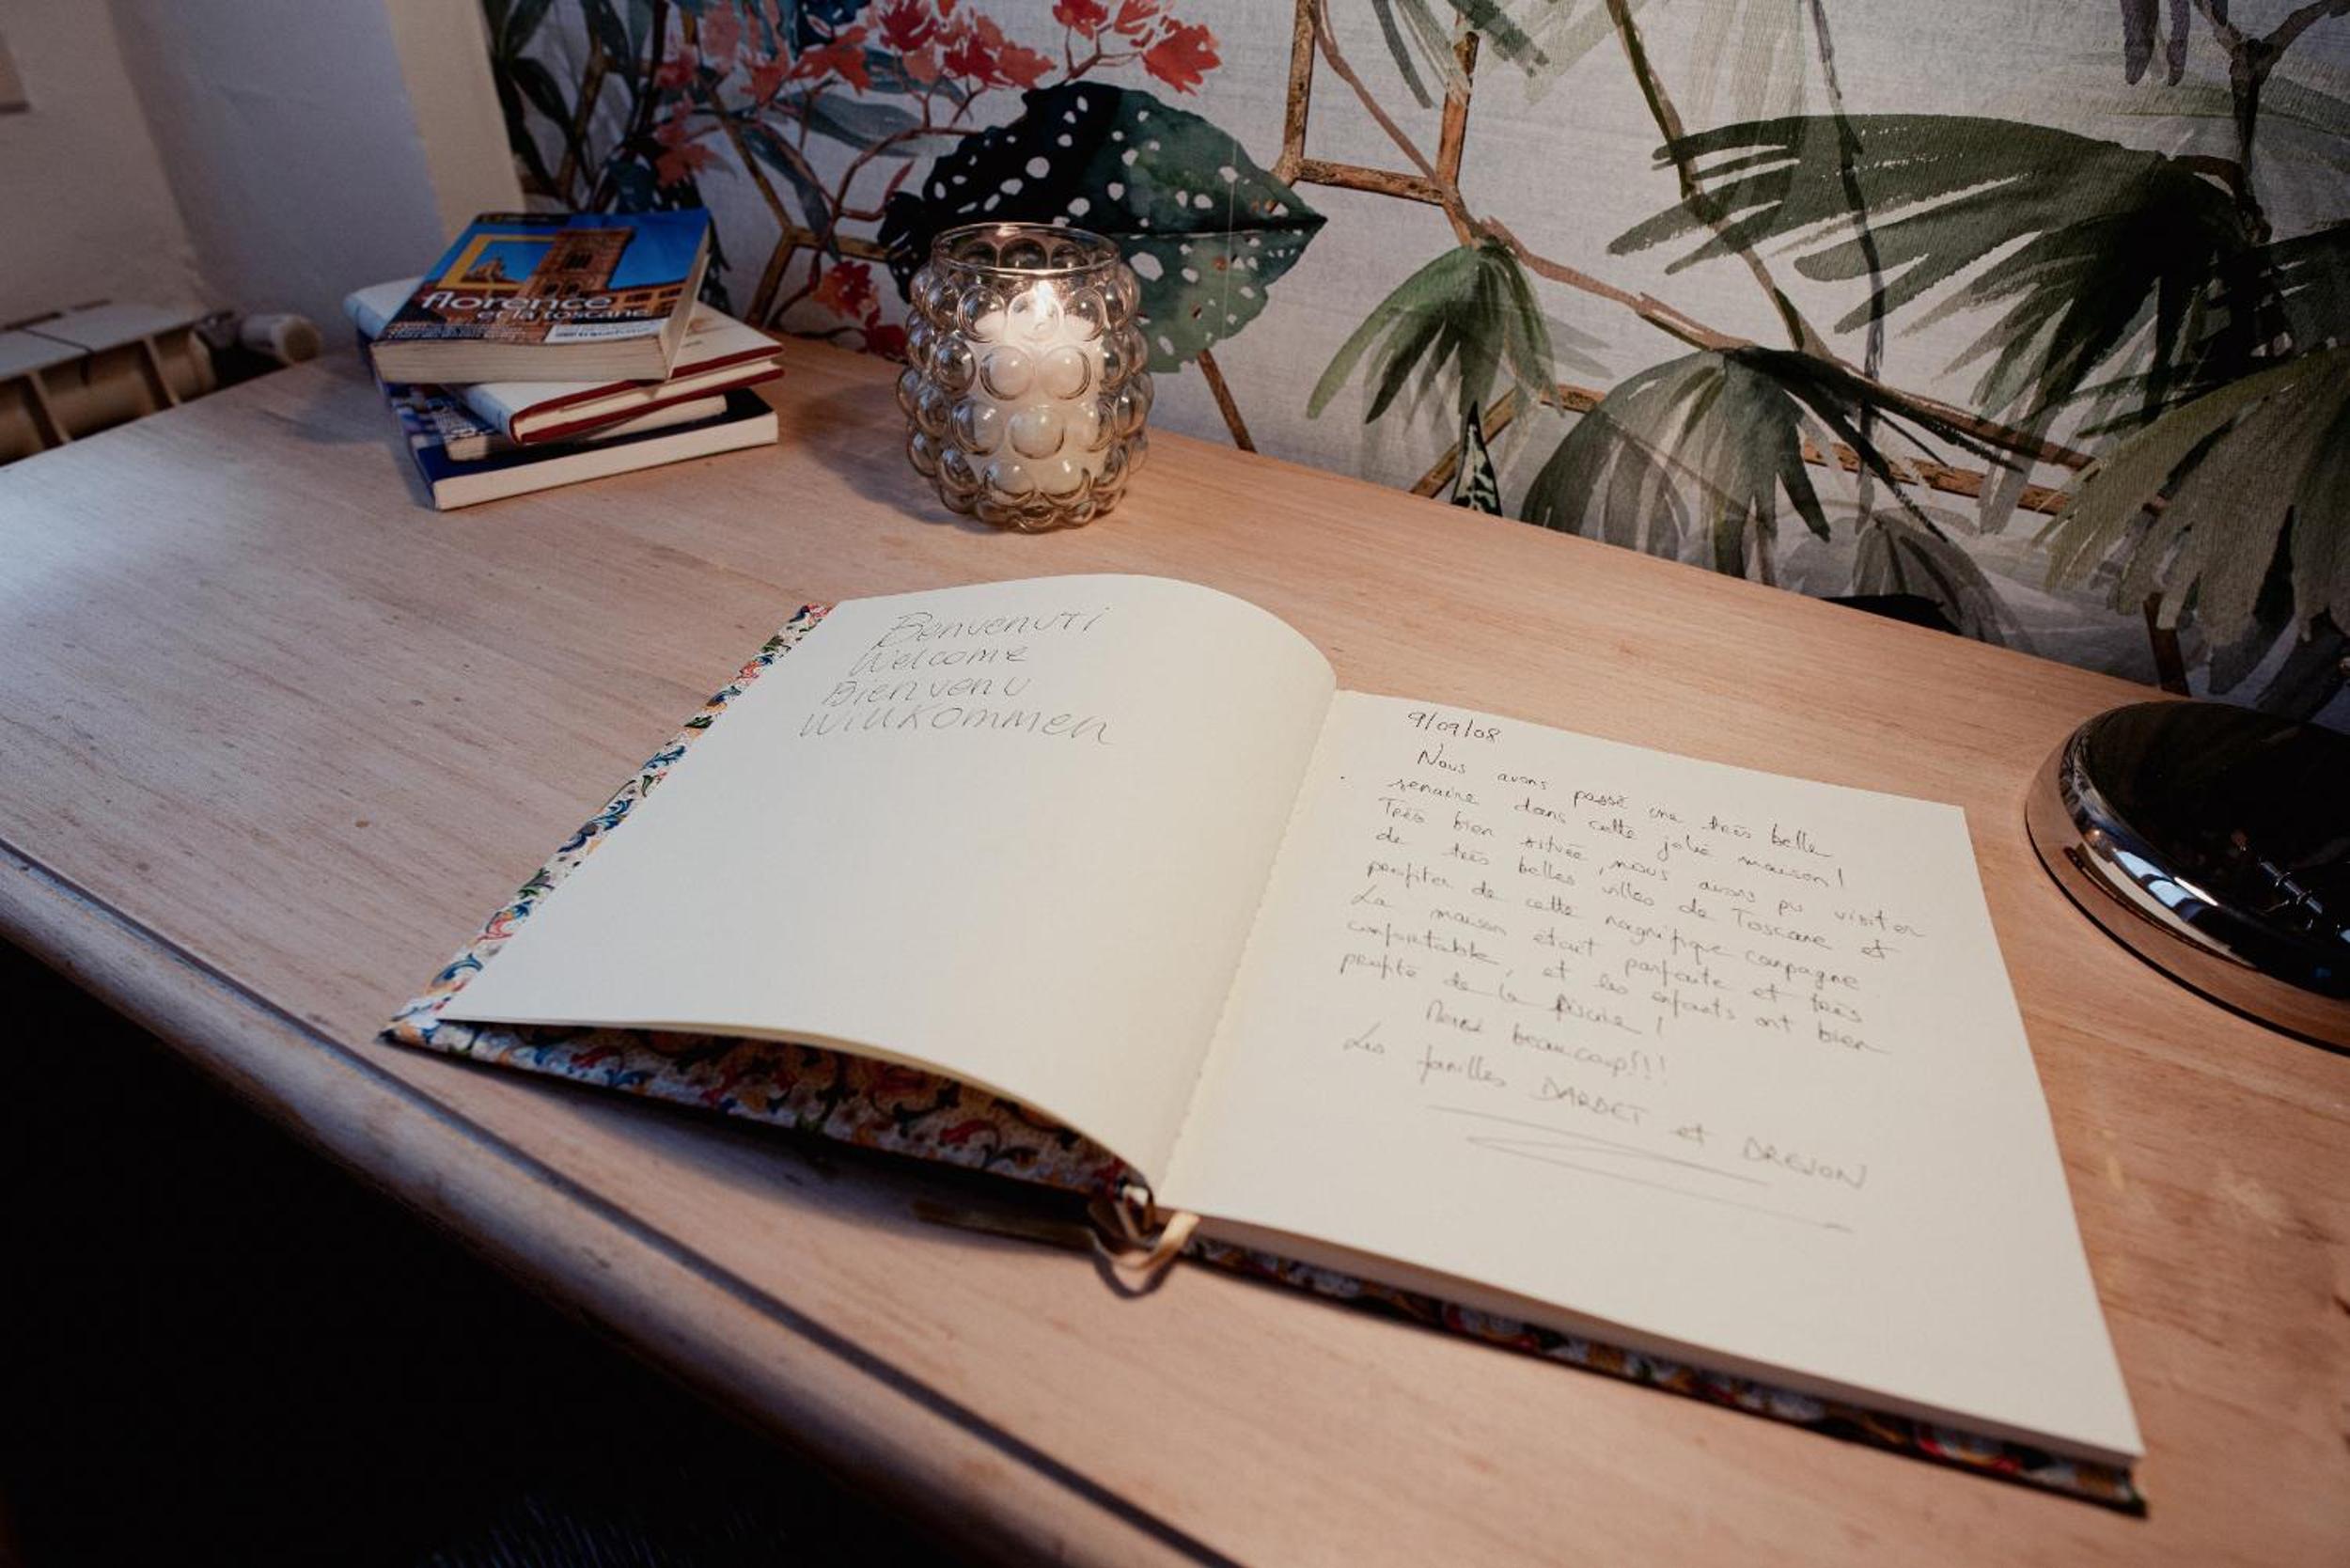 florence
et la toscane
Benvenuti
Welcome
Bienvenu
Willkommen
9/09/08
Nous avons passé une très belle
semaine dans cette jolie maison!
Très bien située, nous avons pu visiter
de très belles villes de Toscane et
profiter de cette magnifique campagne
La maison était parfaite et très
confortable, et les enfants ont bien
profité de la piscine!
Merci beaucoup!!!
Les familles DARDET et DREJON